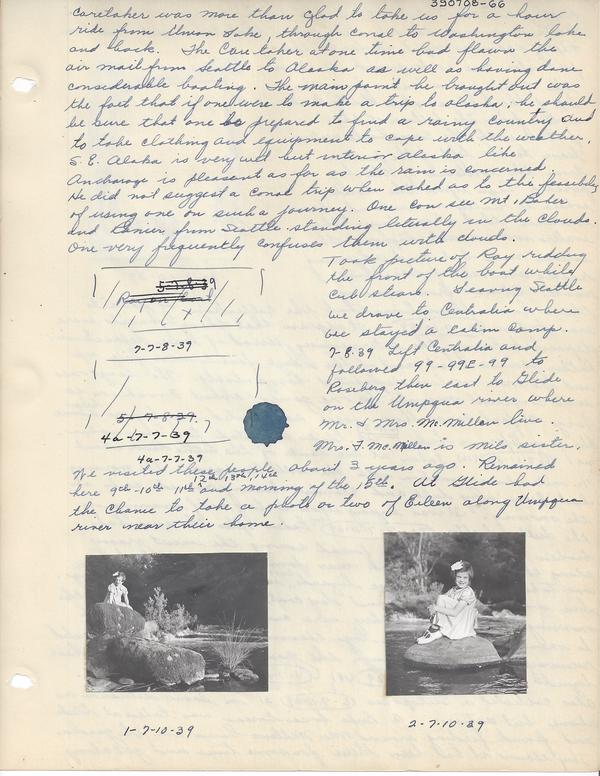 390708-66
caretaker was more than glad to take us for a hour
ride from Union Lake, through canal to Washington lake
and back. The Caretaker at one time had flown the
air mail from Seattle to Alaska as well as having done
considerable boating. The main point he brought out was
the fact that if one were to make a trip to alaska, he should
be sure that one be prepared to find a rainy country and
to take clothing and equipment to cope with the weather.
S.E. Alaska is very wet but interior Alaska like
Ancharage is pleasant as far as the rain is concerned
He did not suggest a canoe trip when asked as to the feasibility
of using one on such a journey. One can see Mt. Baker
and Ranier from Seattle standing literally in the clouds.
One very frequently confuses them with clouds.
Took picture of Ray ridding
the front of the boat while
Cub stears. Leaving Seattle
we drove to Centralia where
we stayed a cabin camp.
7-8-39 Left Centralia and
followed 99-99E-99 to
Roseberg then east to Glide
on the Umpqua river where
Mr. & Mrs. McMillan live.
Mrs. F. McMillan is Milo sister.
5-7-8-39
7-7-8-39
5-7-8-39
4a-7-7-39
4a-7-7-39
We visited these people about 3 years ago. Remained
here 9th-10th 11th 12th 13th, 14th and morning of the 15th. At Glide had
the chance to take a photo or two of Eileen along Umpqua
river near their home.
1-7-10-39
2-7-10-39